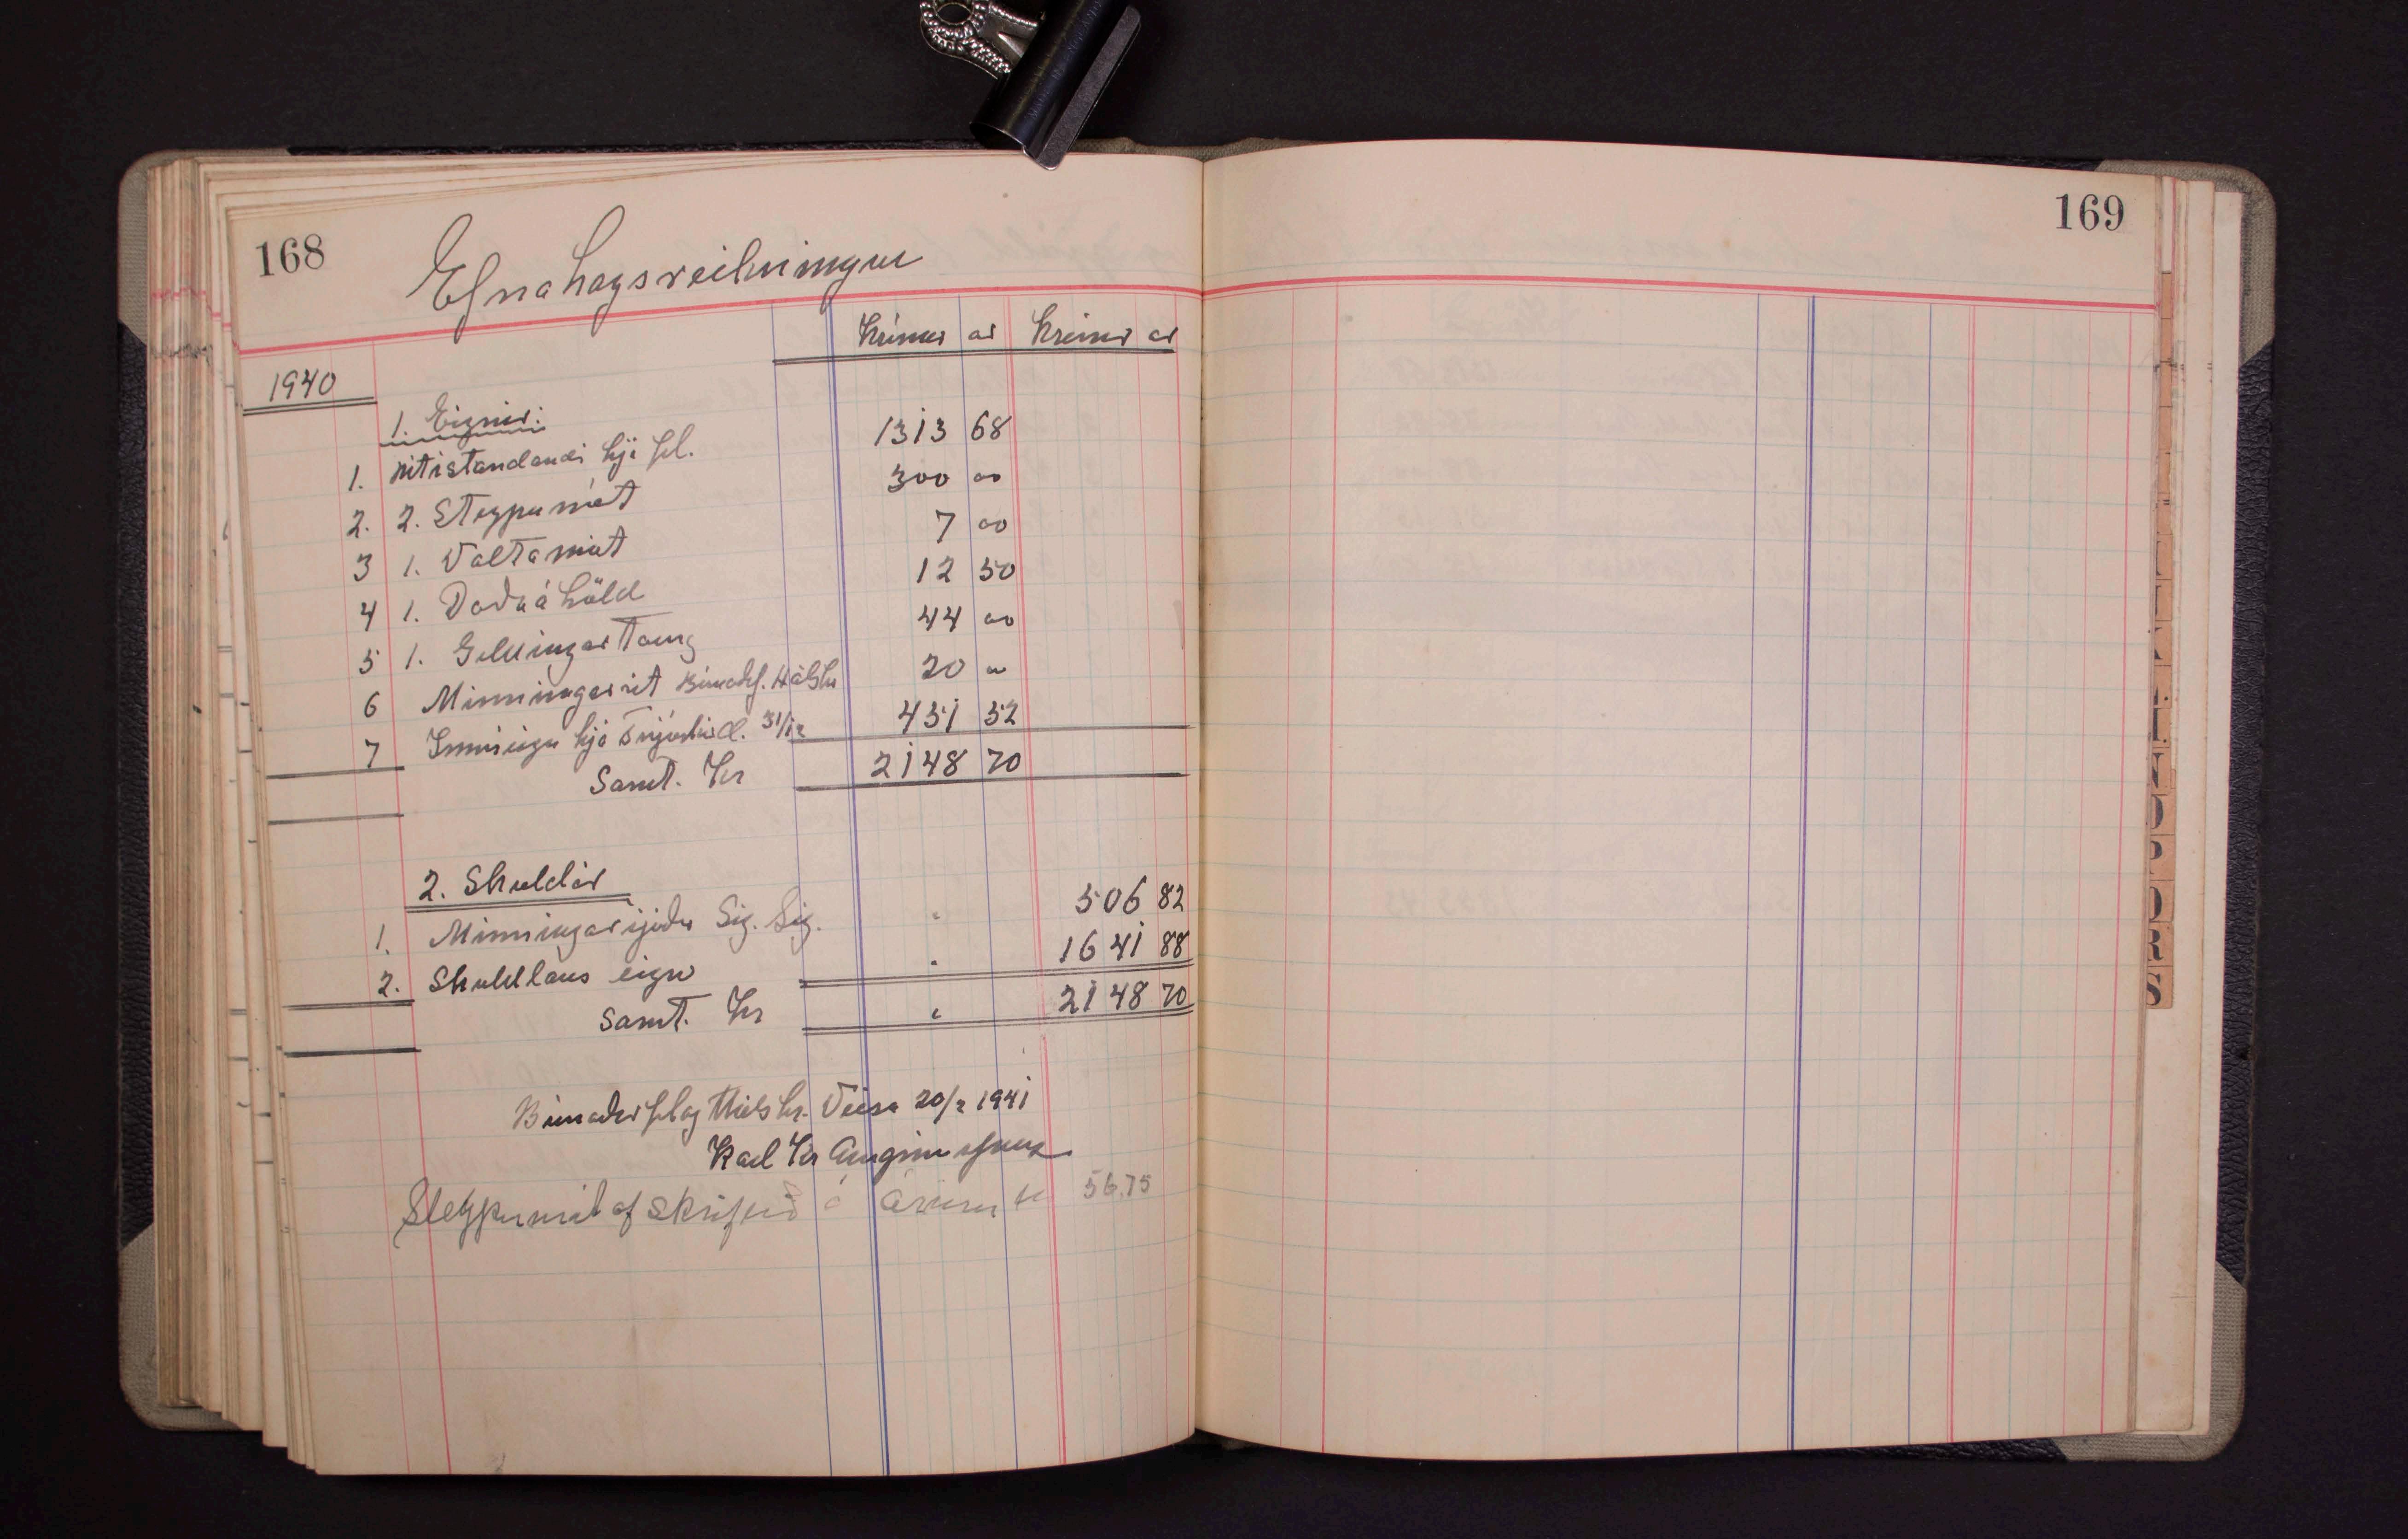 168
Efnahagsreikningur
Krónur ar Krónur ar
1940
1. Eignir:
1. Útistandandi hjá fél. 1313 68
2. 2. Steypumót 300 00
3 1. Valtamót 7 00
4 1. Doðaáhöld 12 50
5 1. Geldingartaung 44 00
6 Minningarrit Búnaðf. Hálshr 20 00
7 Inneign hjá 31/12 451 52
Samt. Kr 2148 70
2. Skuldir
1. Minningarsjóður Sig. Sig. " 506 82
2. Skuldlaus eign " 1641 88
Samt. Kr " 2148 70
Búnaðarfélag Hálshr. Veisa 20/2 1941
Karl Kr Arngrímsson
Steypumót afskrifuð á árinu kr 56.75
169